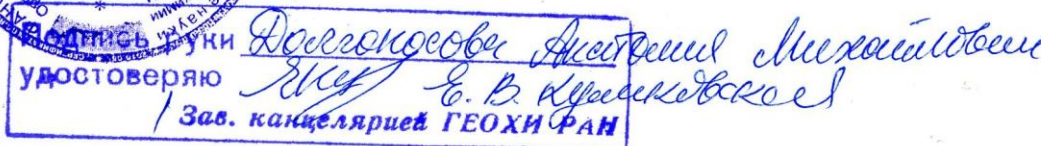 Подпись руки Долгоносова Анатолия Михайловича
удостоверяю Е. В. Кулиновская
Зав. канцелярией ГЕОХИ РАН